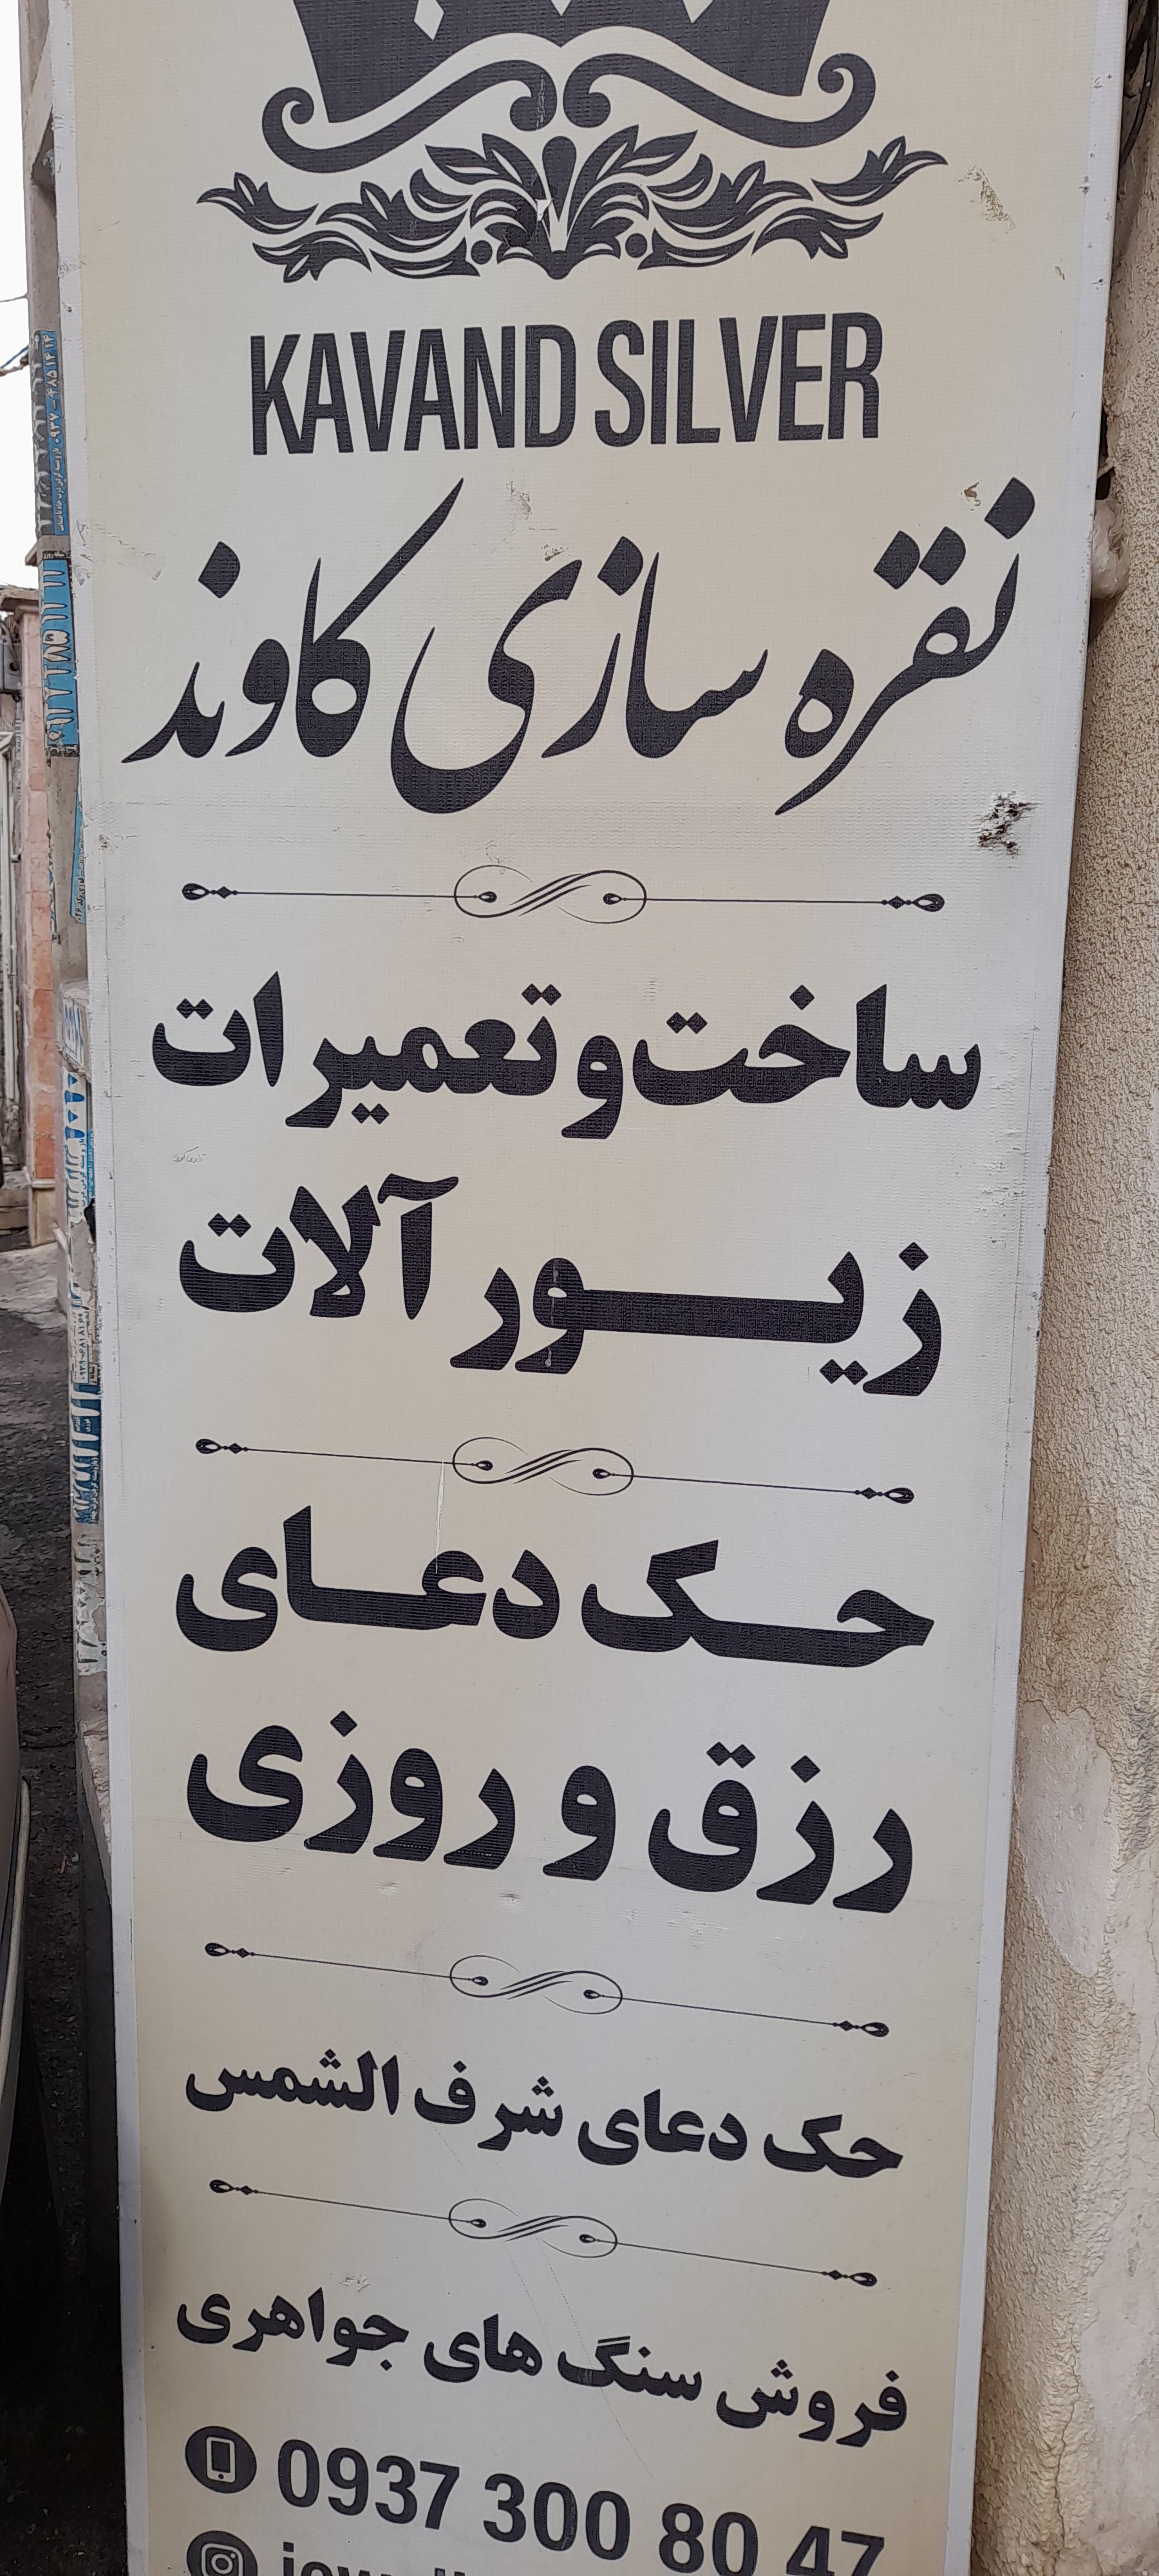 KAVAND SILVER
نقره سازی کاوند
ساخت و تعمیرات
زیور آلات
حک دعای
رزق و روزی
حک دعای شرف الشمس
فروش سنگ های جواهری
0937 300 80 47